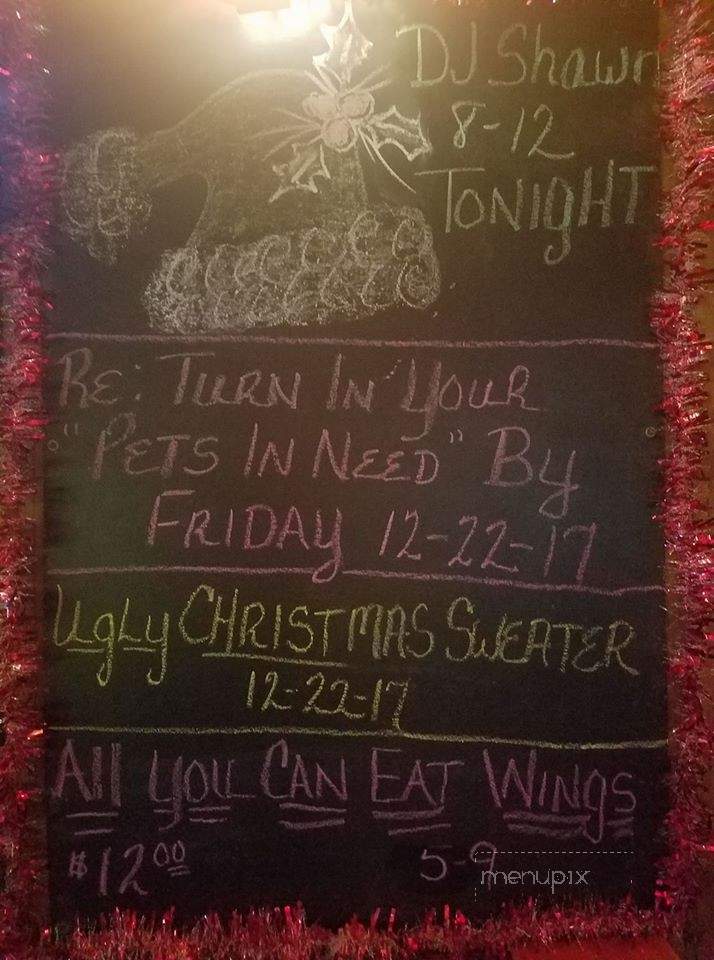 DJ Shawn
8-12
TONIGHT
RE: TURN IN YOUR
"PETS IN NEED" BY
FRIDAY 12-22-17
UgLy CHRISTMAS SWEATER
12-22-17
All YOU CAN EAT WINgS
$12.00 5-9
menupix